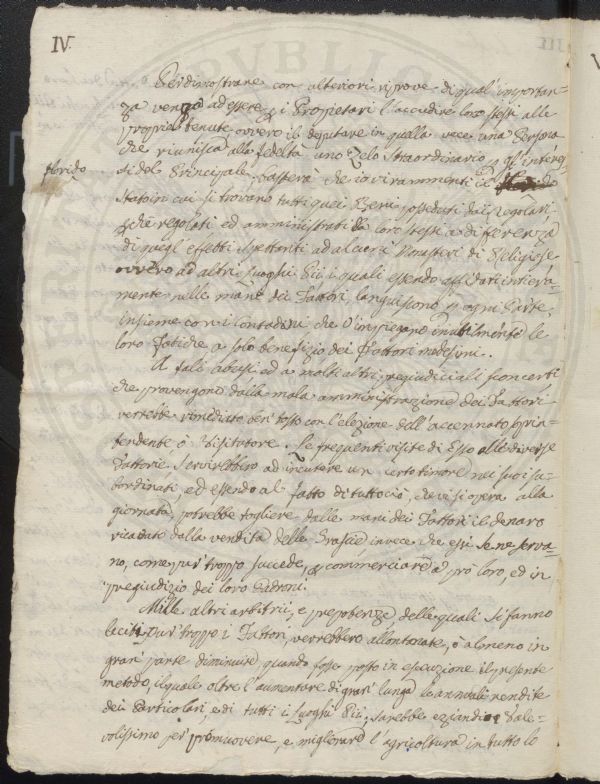 IV.
Per dimostrare con ulteriori riprove di qual' importan-
za venga ad essere p i Proprietari l'accudire loro stessi alle
proprie tenute, ovvero il deputare in quella vece una Persona
che riunisca alla fedeltà uno zelo straordinario p gl' interes-
si del Principale, basterà che io vi rammenti il
florido
Stato in cui si trovano tutti quei Beni posseduti dai Regolari,
che regolati ed amministrati da loro stessi a differenza
di quegl' effetti spettanti ad alcuni Monasteri di Religiose
ovvero ad altri Luoghi Pii, i quali essendo affidati intiera-
mente nelle mani dei Fattori, languiscono p ogni Parte,
insieme con i Contadini che v'impiegano inutilmente le
loro fatiche a solo benefizio dei Fattori medesimi.
A tali abusi ed a molti altri pregiudiciali sconcerti
che provengono dalla mala amministrazione dei Fattori
verrebbe rimediato ben tosto con l'elezione dell' accennato Sprin-
tendente o Visitatore. Le frequenti visite di Esso alle diverse
Fattorie servirebbero ad incutere un certo timore nei suoi su-
bordinati, ed essendo al fatto di tuttociò, che vi si opera alla
giornata, potrebbe togliere dalle mani dei Fattori il denaro
ricavato dalla vendita delle Grascie invece che essi se ne serva-
no, come pur troppo succede, p commerciare a prò loro, ed in
pregiudizio dei loro Padroni.
Mille altri arbitrii, e prepotenze, delle quali si fanno
lecito pur troppo i Fattori, verrebbero allontanate, o almeno in
gran parte diminuite, quando fosse posto in esecuzione il presente
metodo, il quale oltre l'aumentare di gran lunga le annuali rendite
dei Particolari, e di tutti i Luoghi Pii, sarebbe eziandio vale-
volissimo per promuovere, e migliorare l'agricoltura in tutto lo